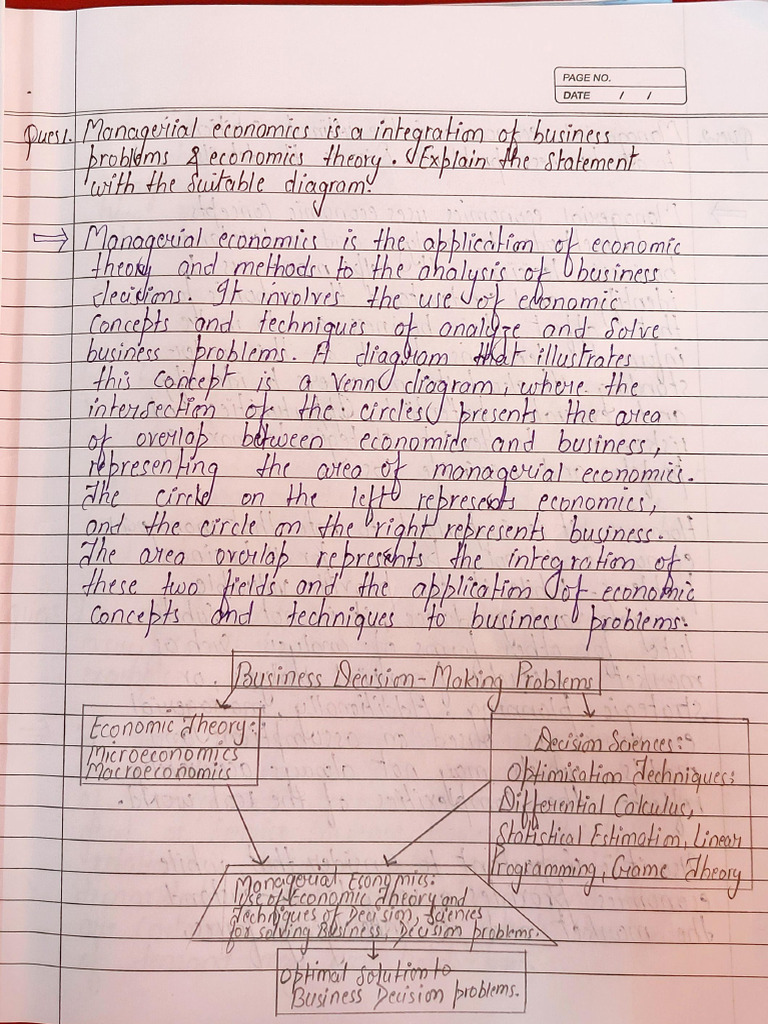 PAGE NO.
DATE / /
Ques1. Managerial economics is a integration of business
problems & economics theory. Explain the statement
with the suitable diagram.
⇒ Managerial economics is the application of economic
theory and methods to the analysis of business
decisions. It involves the use of economic
concepts and techniques of analyze and solve
business problems. A diagram that illustrates
this concept is a Venn diagram, where the
intersection of the circles presents the area
of overlap between economics and business,
representing the area of managerial economics.
The circle on the left represents economics,
and the circle on the right represents business.
The area overlap represents the integration of
these two fields and the application of economic
concepts and techniques to business problems.
Business Decision-Making Problems
Economic Theory:
Microeconomics
Macroeconomics
Decision Sciences:
Optimisation Techniques:
Differential Calculus,
Statistical Estimation, Linear
Programming, Game Theory
Managerial Economics:
Use of Economic Theory and
Techniques of Decision, Sciences
for solving Business, Decision problems.
Optimal solution to
Business Decision problems.